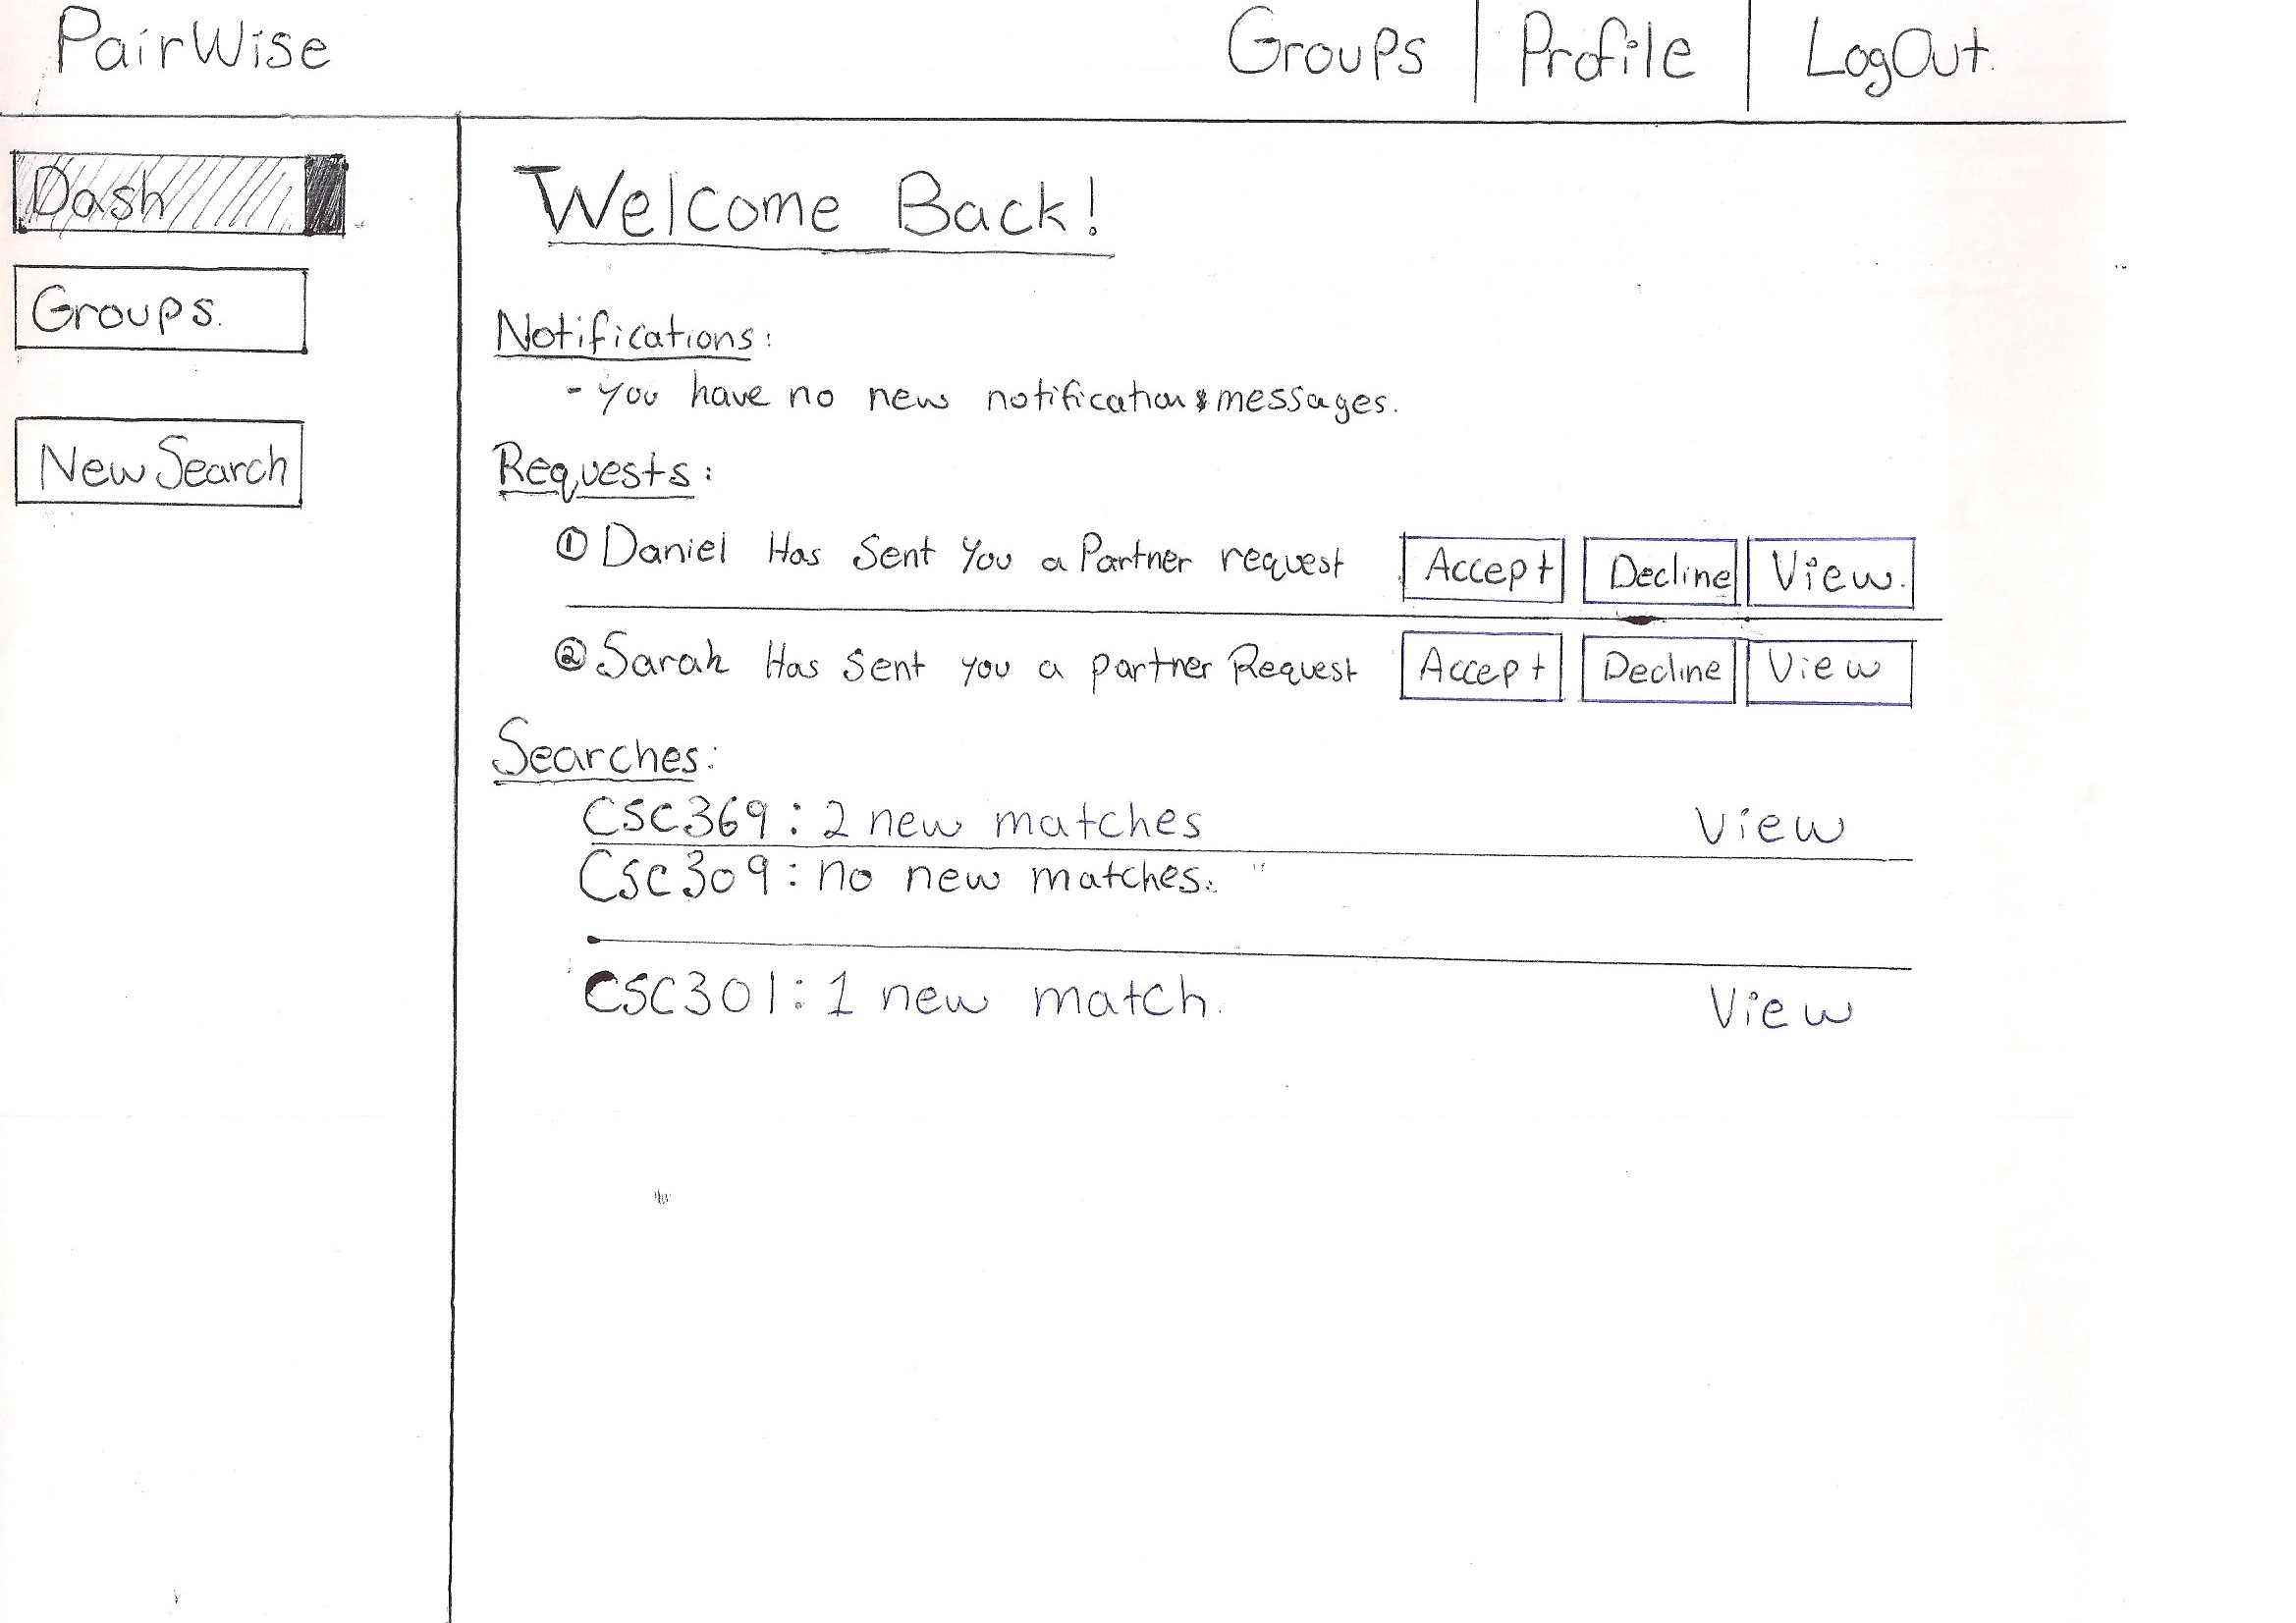 PairWise
Groups | Profile | LogOut.
Dash
Groups.
New Search
Welcome Back!
Notifications:
- You have no new notifications messages.
Requests:
① Daniel Has Sent You a Partner request Accept Decline View.
② Sarah Has Sent you a partner Request Accept Decline View
Searches:
CSC369: 2 new matches View
CSC309: no new matches.
CSC301: 1 new match. View